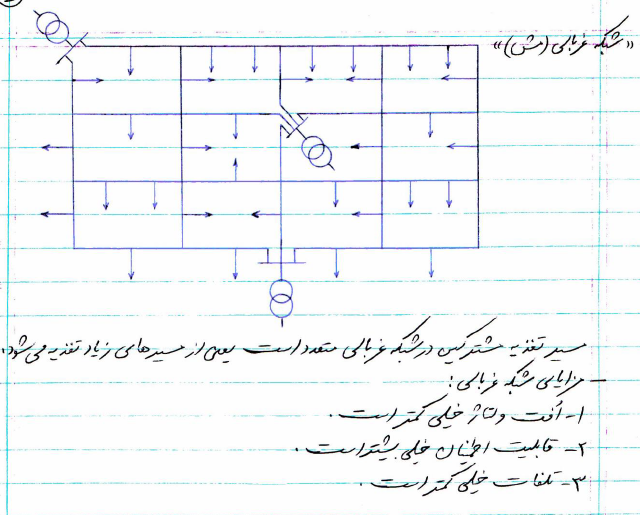 «شبکه غربالی (مش)»
مسیر تغذیه مشترکین در شبکه غربالی متعدد است یعنی از مسیرهای زیاد تغذیه می شود.
- مزایای شبکه غربالی :
۱- اُفت ولتاژ خیلی کمتر است .
۲- قابلیت اطمینان خیلی بیشتر است .
۳- تلفات خیلی کمتر است .